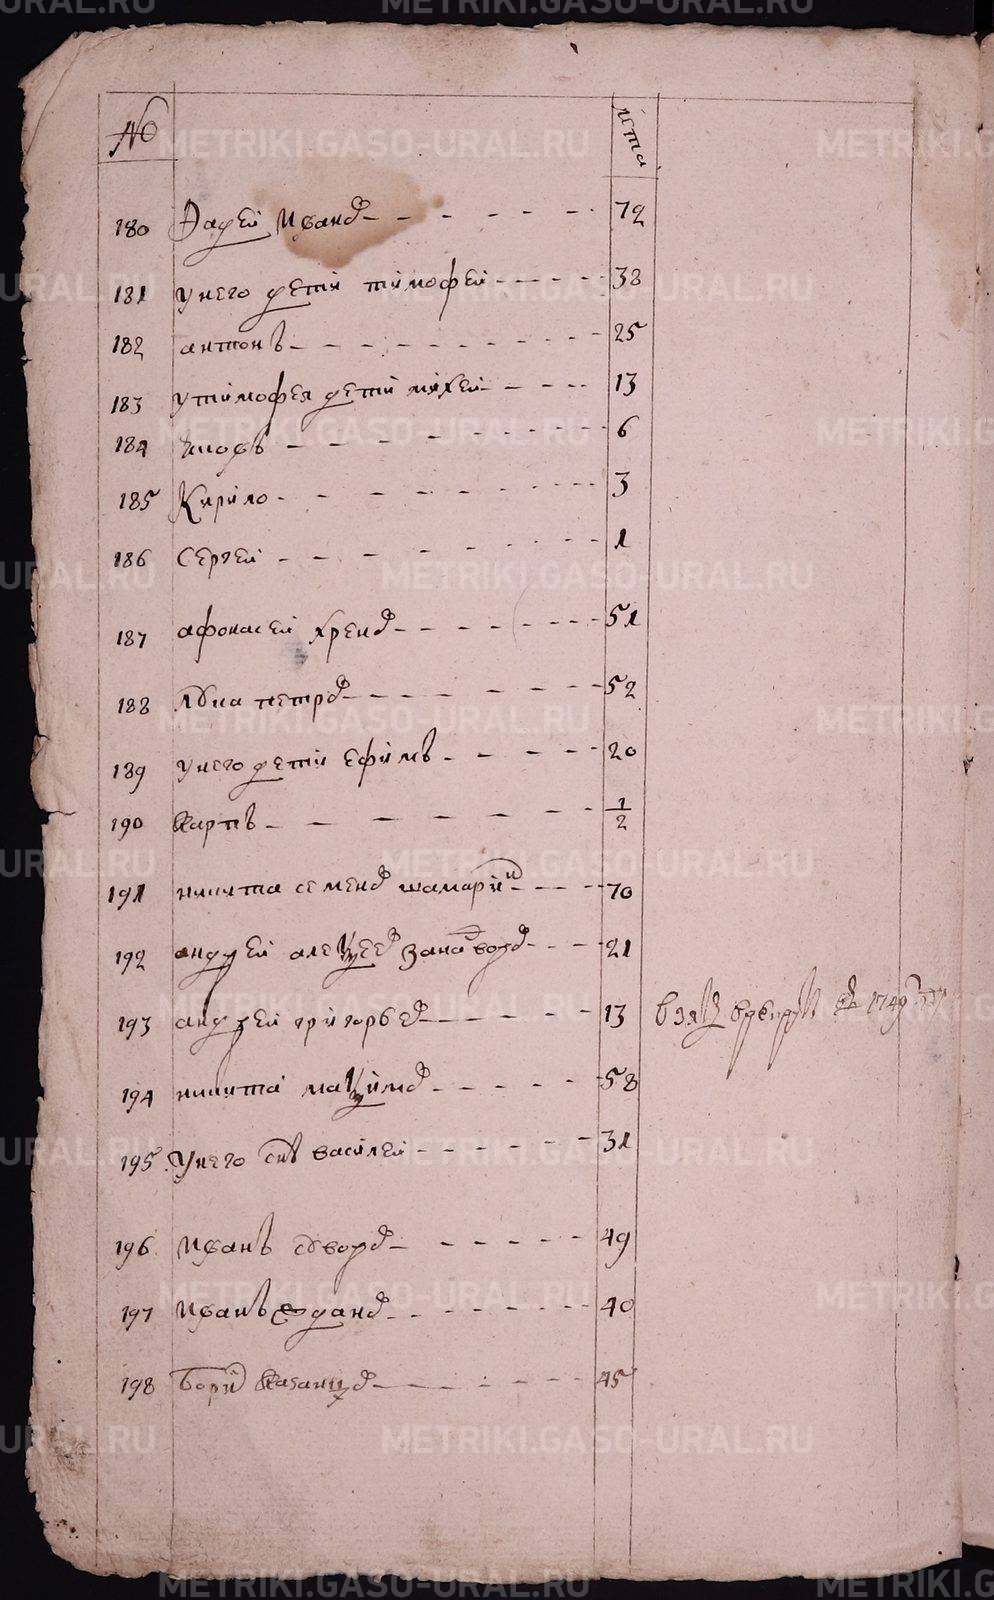 № лѣта
180 Фадей Иванов 72
181 у него детей тимофей 38
182 антонъ 25
183 у тимофея детей михей 13
184 6
185 Кирило 3
186 Сергей 1
187 афонасей хренов 51
188 лука петров 52
189 у него детей ефимъ 20
190 карпъ 1/2
191 никита семенов шамарин 70
192 андрей алексеев 21
193 андрей григорьев 13 взят в рекруты в 1749 году
194 никита максимов 58
195 У него снъ василей 31
196 Иванъ 49
197 Иванъ 40
198 Борис казанцов 45
METRIKI.GASO-URAL.RU